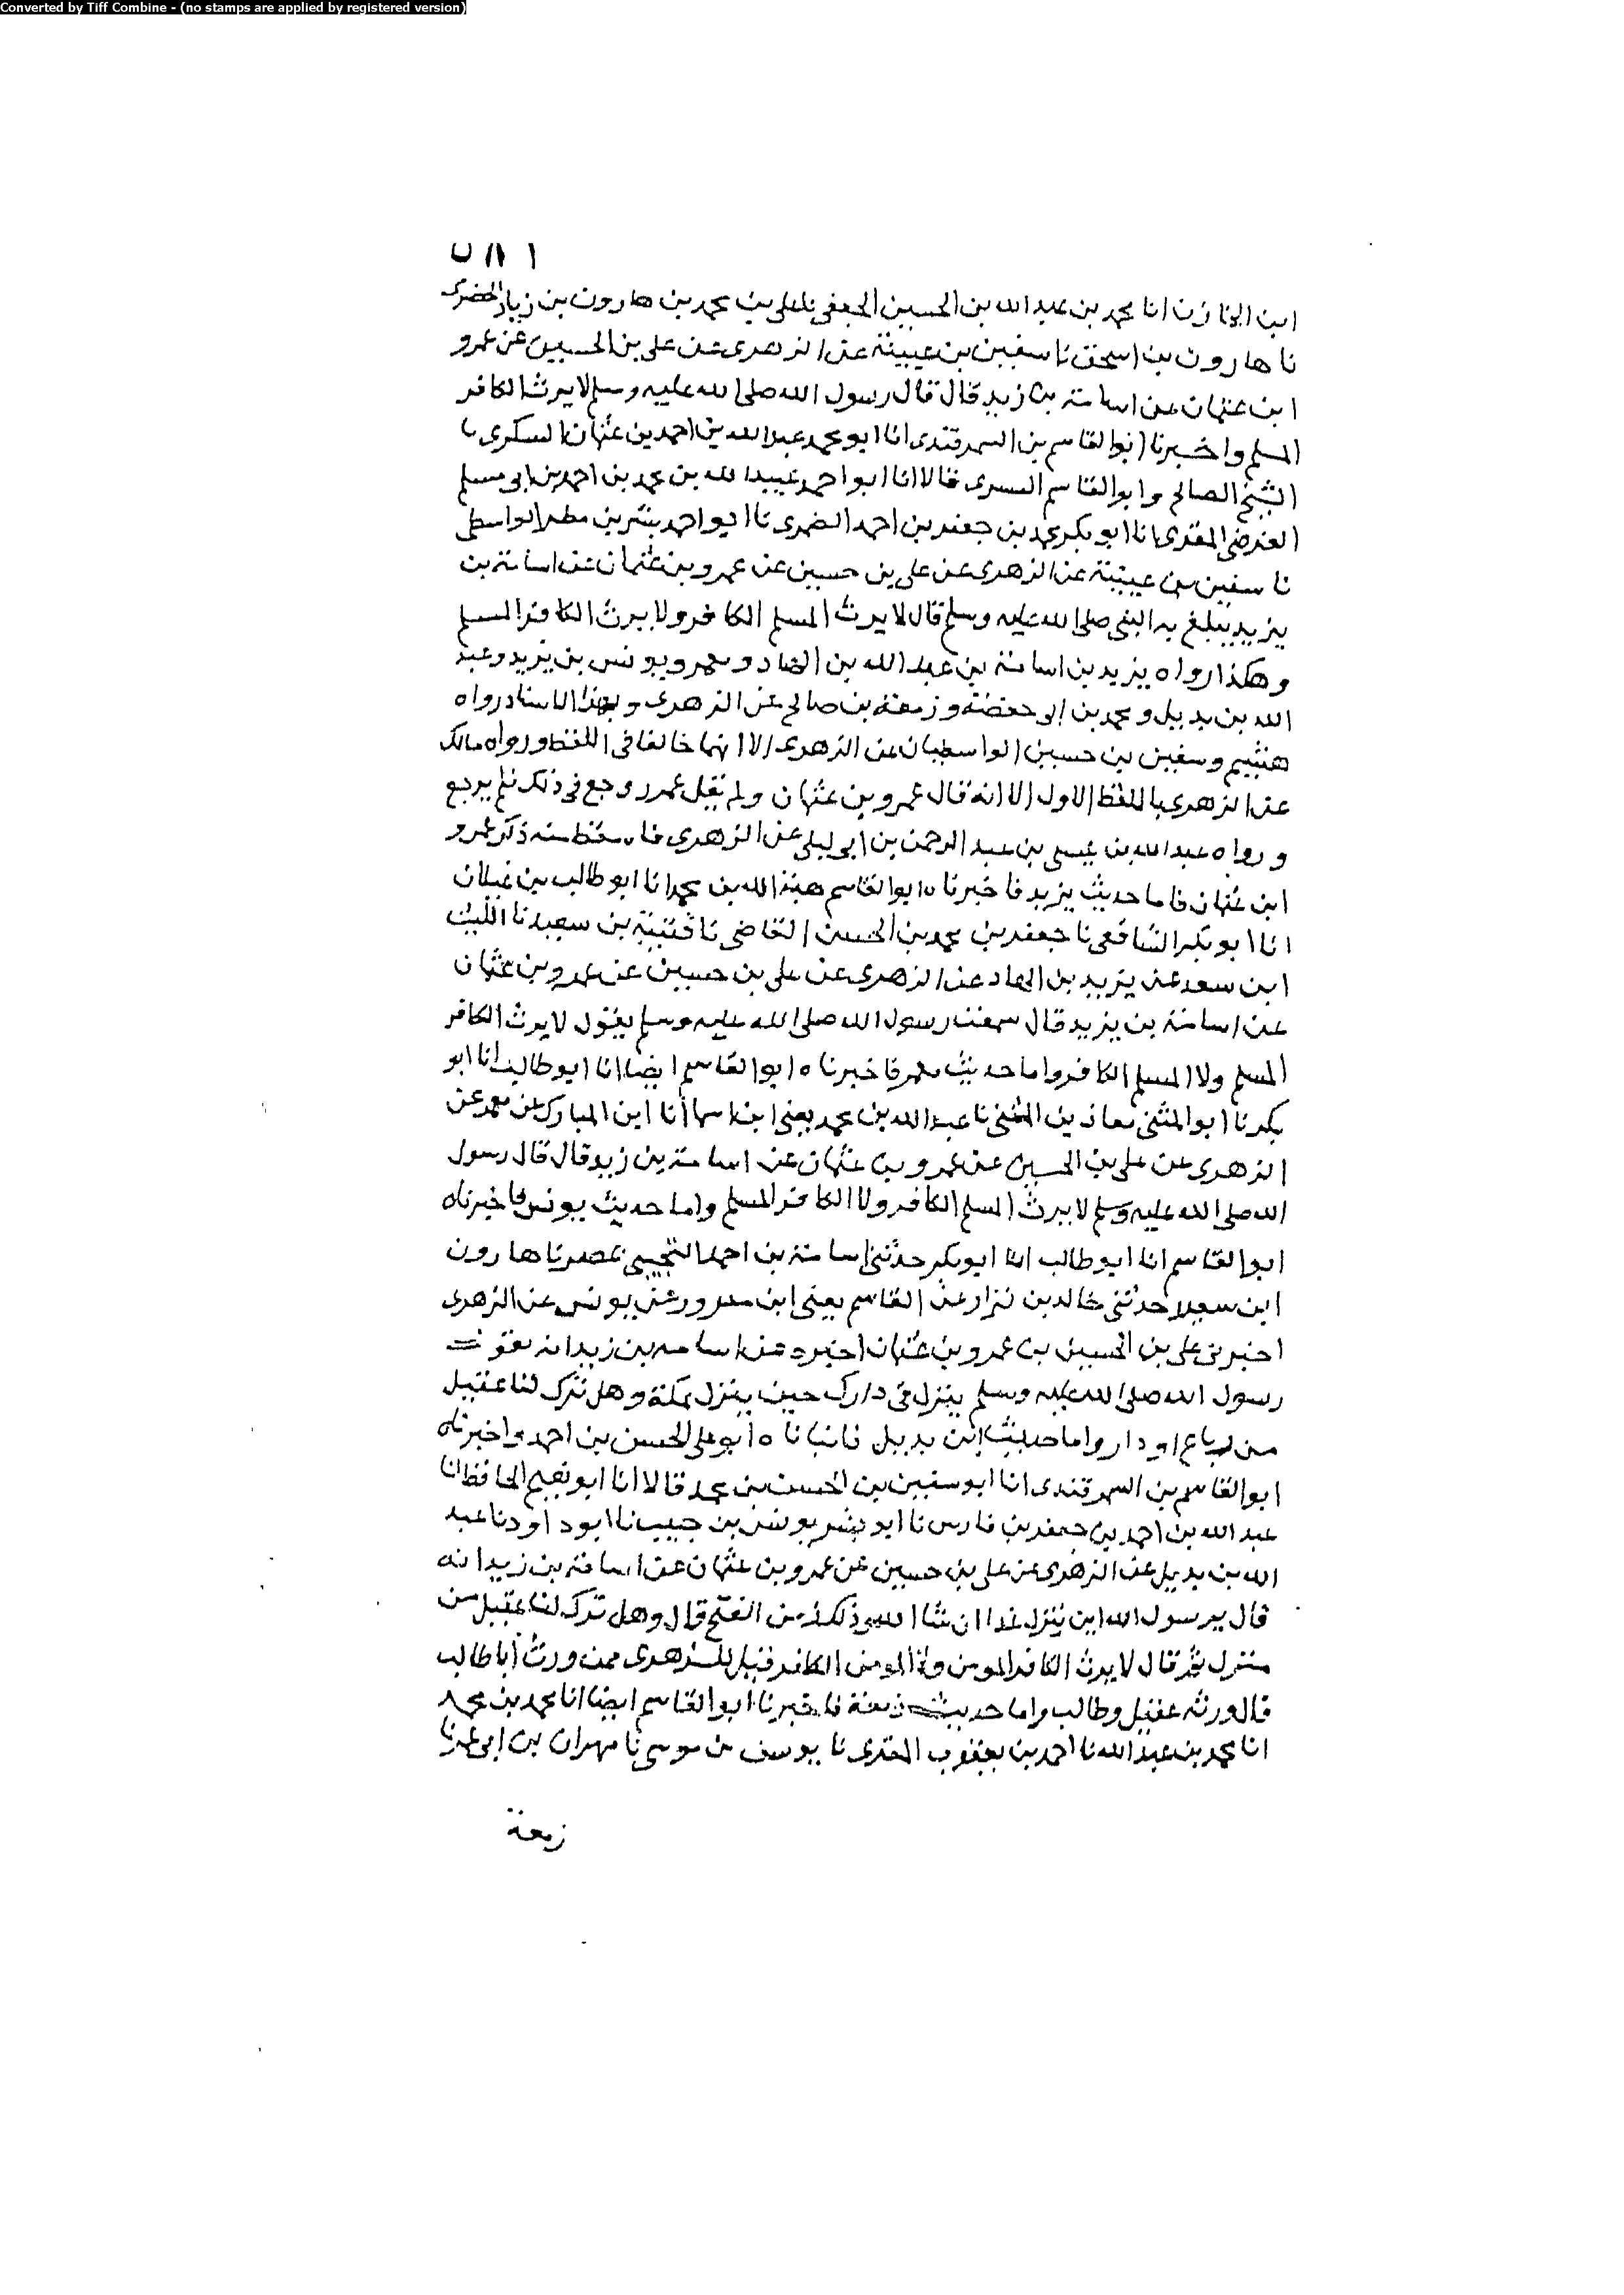 Converted by Tiff Combine - (no stamps are applied by registered version)
ابن الخازن انا محمد بن عبد الله بن الحسين الجعفي نا علي بن محمد بن هارون بن زياد الحضرى
نا هارون بن اسحق نا سفين بن عيينة عن الزهرى عن على بن الحسين عن عمرو
ابن عثمان عن اسامة بن زيد قال قال رسول الله صلى الله عليه وسلم لا يرث الكافر
المسلم واخبرنا ابو القاسم بن السمرقندى انا ابو محمد عبد الله بن احمد بن عثمان السكرى
الشيخ الصالح وابو القاسم قالا انا ابو احمد عبيد الله بن محمد بن احمد بن ابى مسلم
الفرضى المقرى نا ابو بكر محمد بن جعفر بن احمد نا ابو احمد بشر بن مطر الواسطى
نا سفين بن عيينة عن الزهرى عن على بن حسين عن عمرو بن عثمان عن اسامة بن
يزيد يبلغ به النبى صلى الله عليه وسلم قال لا يرث المسلم الكافر ولا يرث الكافر المسلم
وهكذا رواه يزيد بن اسامة بن عبد الله بن الهاد ومعمر ويونس بن يزيد وعبد
الله بن بديل ومحمد بن ابى حفصة وزمعة بن صالح عن الزهرى وبهذا الاسناد رواه
هشيم وسفين بن حسين الواسطيان عن الزهرى الا انهما خالفا فى اللفظ ورواه مالك
عن الزهرى باللفظ الاول الا انه قال عمرو بن عثمان ولم يقل عمر وروجع فى ذلك فلم يرجع
ورواه عبد الله بن عيسى بن عبد الرحمن بن ابى ليلى عن الزهرى فاسقط منه ذكر عمرو
ابن عثمان فاما حديث يزيد فاخبرناه ابو القاسم هبة الله بن محمد انا ابو طالب بن غيلان
انا ابو بكر الشافعى نا جعفر بن محمد بن الحسن القاضى نا قتيبة بن سعيد نا الليث
ابن سعد عن يزيد بن الهاد عن الزهرى عن على بن حسين عن عمرو بن عثمان
عن اسامة بن يزيد قال سمعت رسول الله صلى الله عليه وسلم يقول لا يرث الكافر
المسلم ولا المسلم الكافر واما حديث معمر فاخبرناه ابو القاسم ايضا انا ابو طالب انا ابو
بكر نا ابو المثنى معاذ بن المثنى نا عبد الله بن محمد يعنى ابن اسما أنا ابن المبارك عن معمر عن
الزهرى عن على بن الحسين عن عمرو بن عثمان عن اسامة بن زيد قال قال رسول
الله صلى الله عليه وسلم لا يرث المسلم الكافر ولا الكافر المسلم واما حديث يونس فاخبرناه
ابو القاسم انا ابو طالب انا ابو بكر حدثنى اسامة بن احمد التجيبى بمصر نا هارون
ابن سعيد حدثنى خالد بن نزار عن القاسم يعنى ابن مبرور عن يونس عن الزهرى
اخبرنى على بن الحسين بن عمرو بن عثمان اخبره عن اسامة بن زيد انه
رسول الله صلى الله عليه وسلم ينزل فى دارك حين ينزل بمكة وهل ترك لنا عقيل
من رباع او دار واما حديث ابن بديل فانباناه ابو على الحسن بن احمد واخبرناه
ابو القاسم بن السمرقندى انا ابو سفين بن الحسن بن محمد قالا انا ابو نعيم الحافظ انا
عبد الله بن احمد بن جعفر بن فارس نا ابو بشر يونس بن حبيب نا ابو داود نا عبد
الله بن بديل عن الزهرى عن على بن حسين عن عمرو بن عثمان عن اسامة بن زيد انه
قال يرسول الله اين ينزل غدا ان شا الله وذلك زمن الفتح قال وهل ترك لنا عقيل من
منزل ثم قال لا يرث الكافر المومن ولا المومن الكافر فقيل للزهرى ممن ورث أبا طالب
قال ورثه عقيل وطالب واما حديث زمعة فاخبرنا ابو القاسم ايضا انا محمد بن محمد
انا محمد بن عبد الله نا احمد بن يعقوب المقرى نا يوسف بن موسى نا مهران بن ابى عمر نا
زمعة